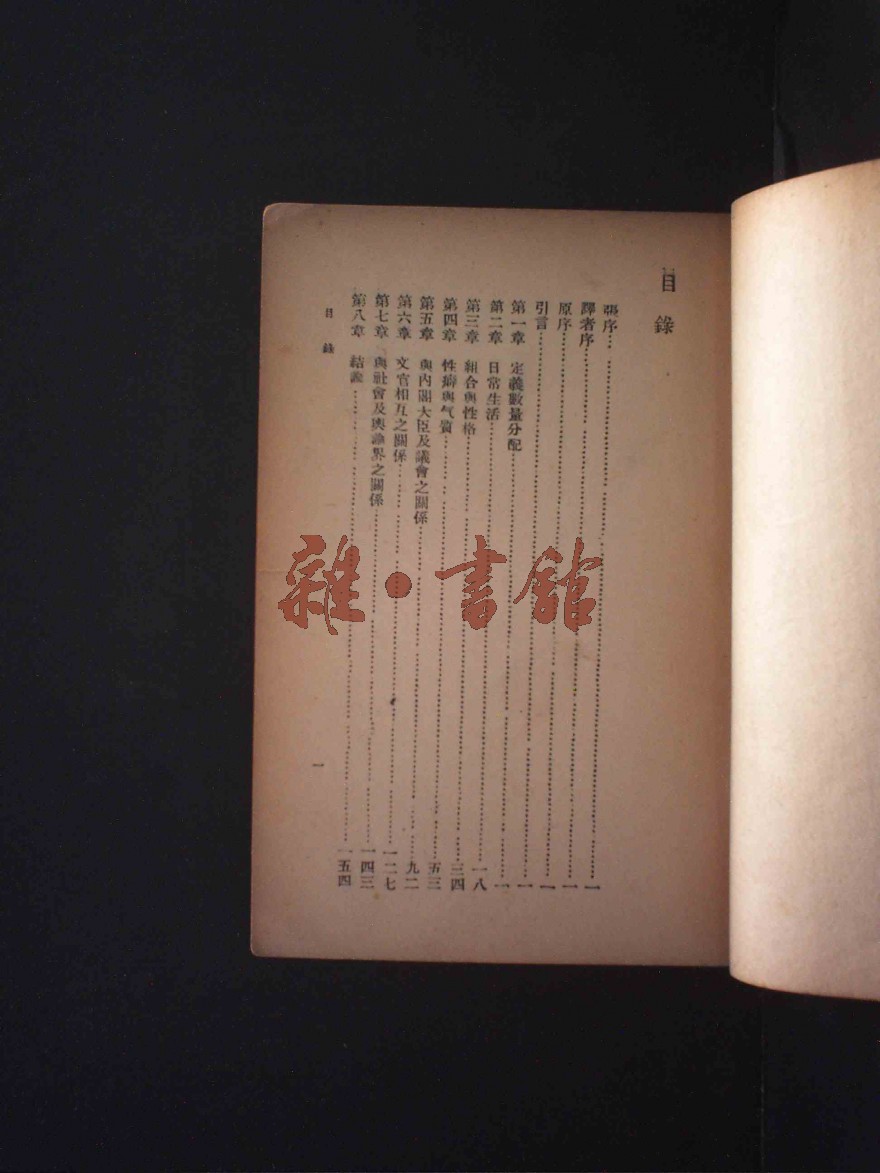 目錄
張序……一
譯者序……一
原序……一
引言……一
第一章 定義數量分配……一
第二章 日常生活……一八
第三章 組合與性格……三四
第四章 性癖與气質……五三
第五章 與內閣大臣及議會之關係……九二
第六章 文官相互之關係……一二七
第七章 與社會及輿論界之關係……一四三
第八章 結論……一五四
目錄
一
雜·書館